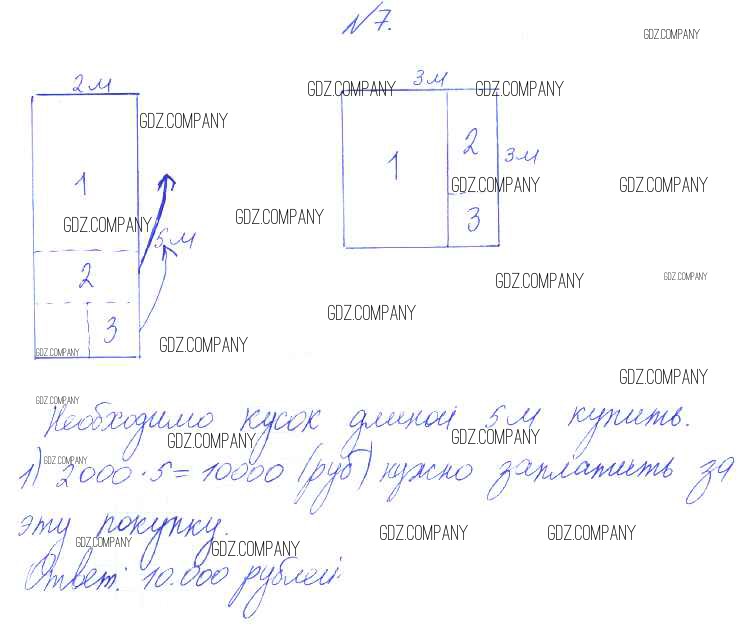 №7.
GDZ.COMPANY
2м
3м
GDZ.COMPANY GDZ.COMPANY
GDZ.COMPANY
1
1
2
3м
GDZ.COMPANY GDZ.COMPANY
GDZ.COMPANY
GDZ.COMPANY
3
5м
2
GDZ.COMPANY GDZ.COMPANY
GDZ.COMPANY
3
GDZ.COMPANY
GDZ.COMPANY
GDZ.COMPANY
GDZ.COMPANY
Необходимо кусок длиной 5м купить.
GDZ.COMPANY GDZ.COMPANY
GDZ.COMPANY
1) 2000·5=10000 (руб) нужно заплатить за
эту покупку.
GDZ.COMPANY GDZ.COMPANY GDZ.COMPANY GDZ.COMPANY
Ответ: 10.000 рублей